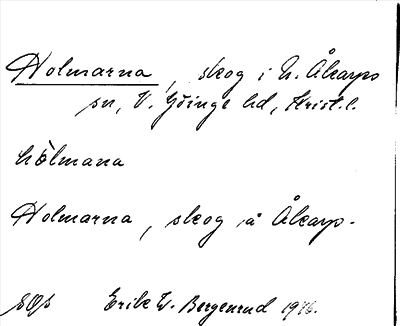 Holmarna, skog i N. Åkarps
sn, V. Göinge hd, Krist. l.
hòlmana
Holmarna, skog i Åkarp.
Erik W. Bergenrud 1946.